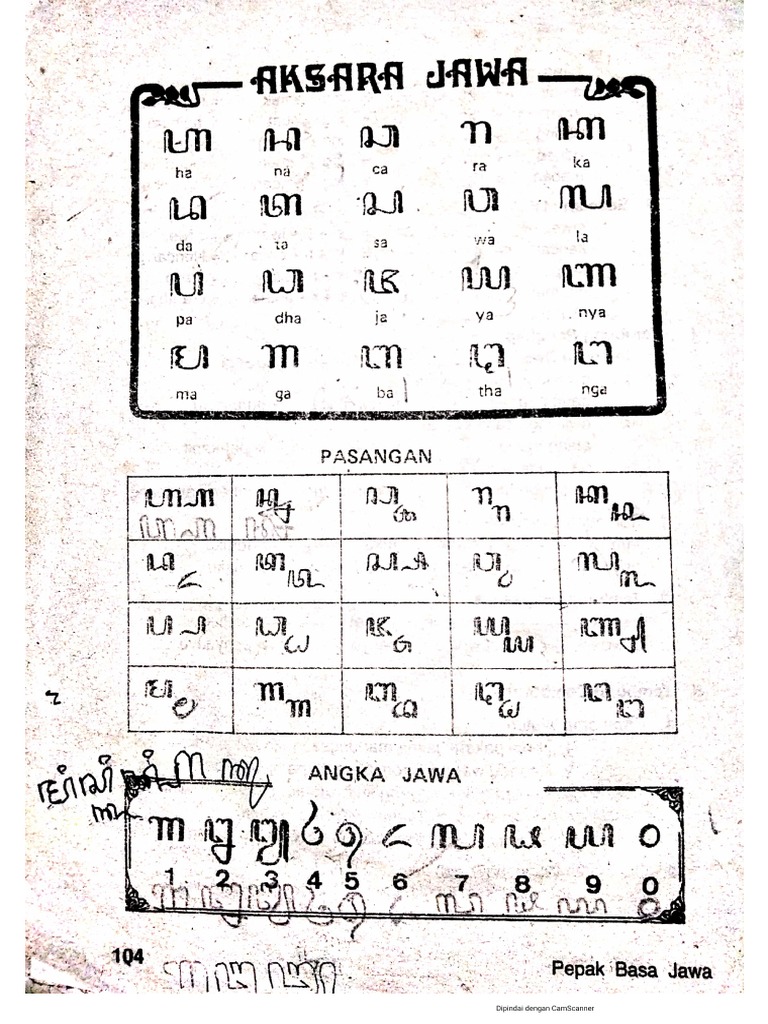 AKSARA JAWA
ꦲ ꦤ ꦕ ꦫ ꦏ
ha na ca ra ka
ꦢ ꦠ ꦱ ꦮ ꦭ
da ta sa wa la
ꦥ ꦝ ꦗ ꦪ ꦚ
pa dha ja ya nya
ꦩ ꦒ ꦧ ꦛ ꦔ
ma ga ba tha nga
PASANGAN
ꦲ꧀ꦲ ꦤ꧀ꦤ ꦕ꧀ꦕ ꦫ꧀ꦫ ꦏ꧀ꦏ
ꦢ꧀ꦢ ꦠ꧀ꦠ ꦱ꧀ꦱ ꦮ꧀ꦮ ꦭ꧀ꦭ
ꦥ꧀ꦥ ꦝ꧀ꦝ ꦗ꧀ꦗ ꦪ꧀ꦪ ꦚ꧀ꦚ
ꦩ꧀ꦩ ꦒ꧀ꦒ ꦧ꧀ꦧ ꦛ꧀ꦛ ꦔ꧀ꦔ
ANGKA JAWA
꧑ ꧒ ꧓ ꧔ ꧕ ꧖ ꧗ ꧘ ꧙ ꧐
1 2 3 4 5 6 7 8 9 0
꧑ ꧒ ꧓ ꧔ ꧕ ꧖ ꧗ ꧘ ꧙ ꧐
104
Pepak Basa Jawa
Dipindai dengan CamScanner